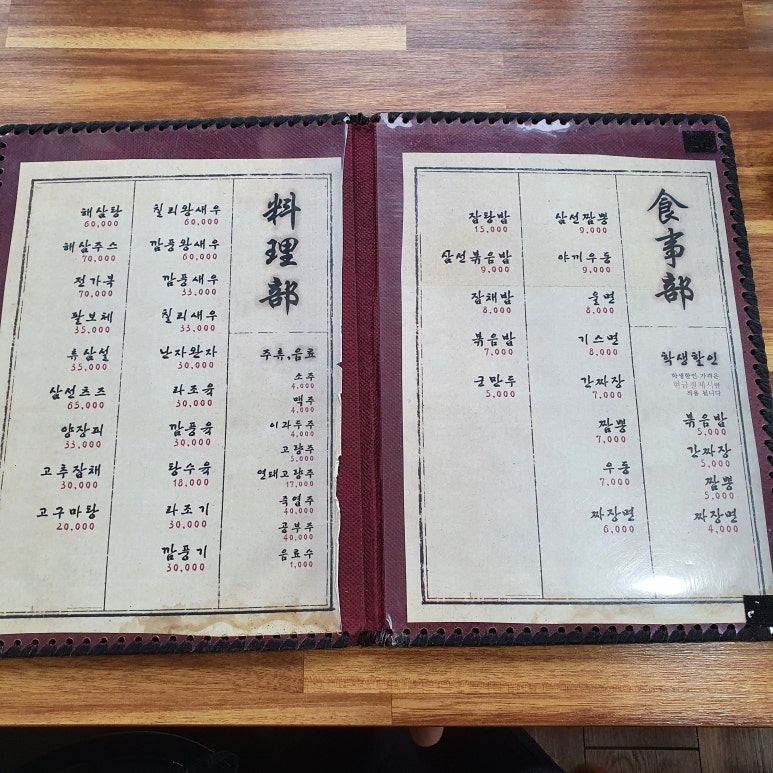 料理部
주류,음료
소주
4,000
맥주
4,000
이과두주
4,000
고량주
5,000
연태고량주
17,000
죽엽주
40,000
공부주
40,000
음료수
1,000
칠리왕새우
60,000
깜풍왕새우
60,000
깜풍새우
33,000
칠리새우
33,000
난자완자
30,000
라조육
30,000
깜풍육
30,000
탕수육
18,000
라조기
30,000
깜풍기
30,000
해삼탕
60,000
해삼쥬스
70,000
전가복
70,000
팔보체
35,000
류삼설
35,000
삼선츠즈
65,000
양장피
33,000
고추잡채
30,000
고구마탕
20,000
食事部
학생할인
학생할인 가격은
현금결제시만
적용 됩니다
볶음밥
5,000
간짜장
5,000
짬뽕
5,000
짜장면
4,000
삼선짬뽕
9,000
야끼우동
9,000
울면
8,000
기스면
8,000
간짜장
7,000
짬뽕
7,000
우동
7,000
짜장면
6,000
잡탕밥
15,000
삼선볶음밥
9,000
잡채밥
8,000
볶음밥
7,000
군만두
5,000